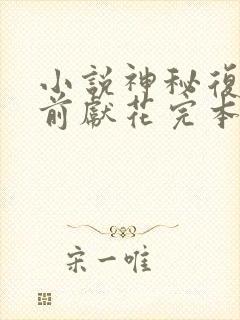 小説神秘復
前獻花完本
宋一唯